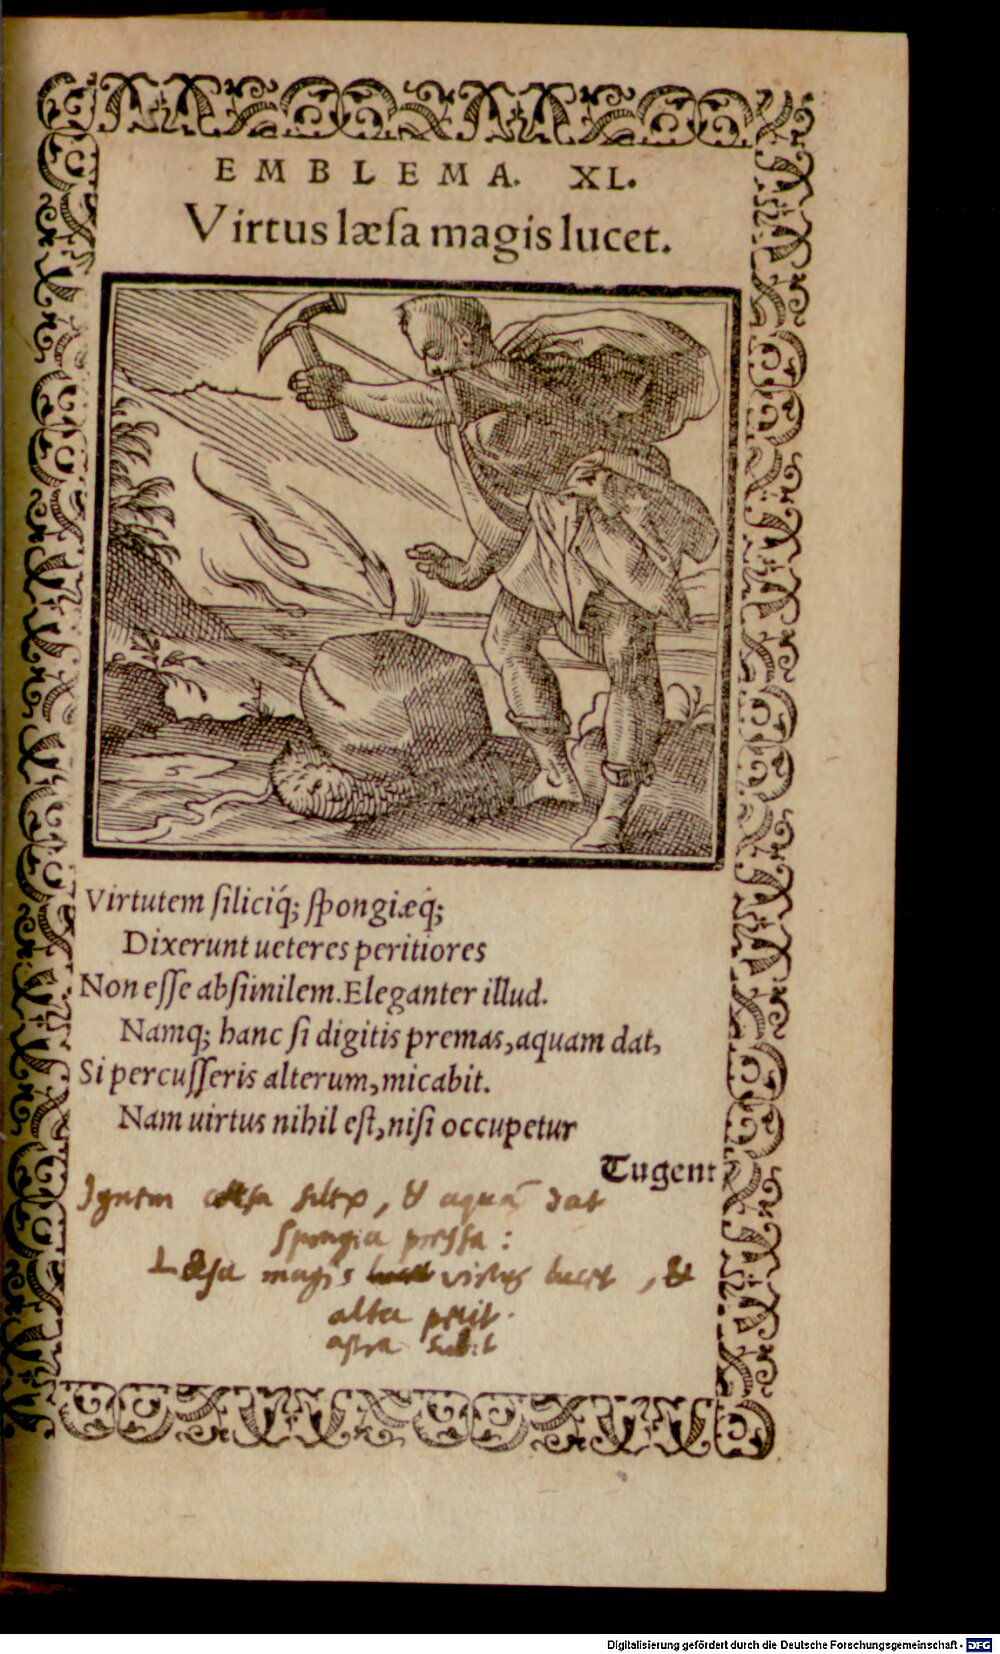 EMBLEMA. XL.
Virtus læſa magis lucet.
Virtutem ſiliciq́; ſpongiæq́;
Dixerunt ueteres peritiores
Non eſſe abſimilem. Eleganter illud.
Namq; hanc ſi digitis premas, aquam dat,
Si percuſſeris alterum, micabit.
Nam uirtus nihil eſt, niſi occupetur
Tugent
Ignem cæsa silex, & aquā dat
spongia pressa:
Læsa magis virtus lucet, &
alta petit.
astra subit
Digitalisierung gefördert durch die Deutsche Forschungsgemeinschaft - DFG